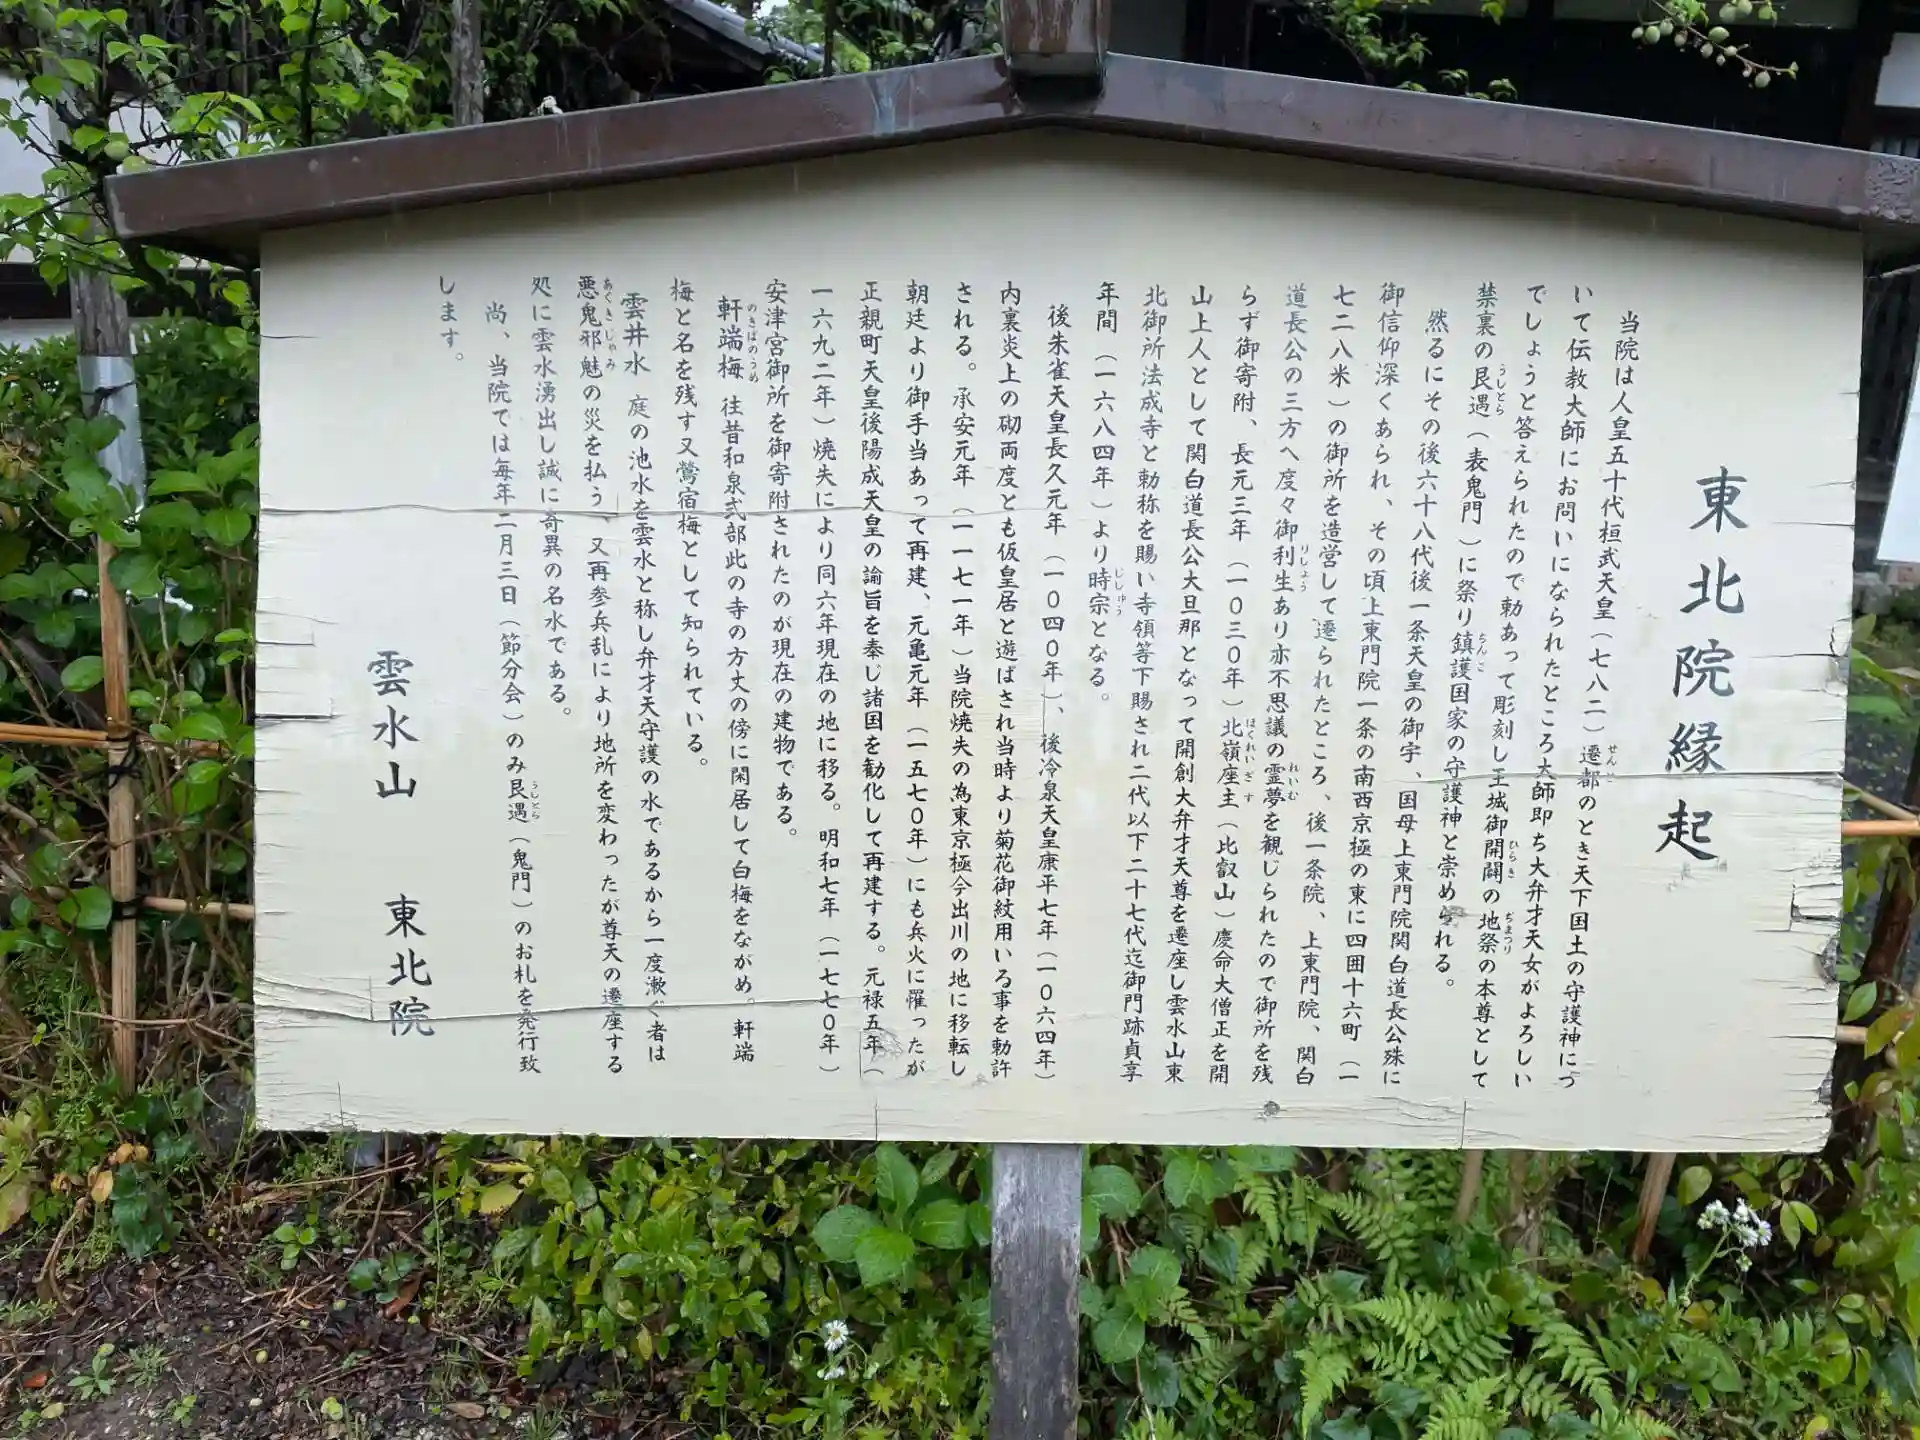 東北院縁起
当院は人皇五十代桓武天皇(七八二)遷都のとき天下国土の守護神につ
いて伝教大師にお問いになられたところ大師即ち大弁才天女がよろしい
でしょうと答えられたので勅あって彫刻し王城御開闢の地祭の本尊として
禁裏の艮遇(表鬼門)に祭り鎮護国家の守護神と崇められる。
然るにその後六十八代後一条天皇の御宇、国母上東門院関白道長公殊に
御信仰深くあられ、その頃上東門院一条の南西京極の東に四囲十六町(一
七二八米)の御所を造営して遷られたところ、後一条院、上東門院、関白
道長公の三方へ度々御利生あり亦不思議の霊夢を観じられたので御所を残
らず御寄附、長元三年(一〇三〇年)北嶺座主(比叡山)慶命大僧正を開
山上人として関白道長公大旦那となって開創大弁才天尊を遷座し雲水山東
北御所法成寺と勅称を賜い寺領等下賜され二代以下二十七代迄御門跡貞享
年間(一六八四年)より時宗となる。
後朱雀天皇長久元年(一〇四〇年)、後冷泉天皇康平七年(一〇六四年)
内裏炎上の砌両度とも仮皇居と遊ばされ当時より菊花御紋用いる事を勅許
される。承安元年(一一七一年)当院焼失の為東京極今出川の地に移転し
朝廷より御手当あって再建、元亀元年(一五七〇年)にも兵火に罹ったが
正親町天皇後陽成天皇の諭旨を奉じ諸国を勧化して再建する。元禄五年(
一六九二年)焼失により同六年現在の地に移る。明和七年(一七七〇年)
安津宮御所を御寄附されたのが現在の建物である。
軒端梅 往昔和泉式部此の寺の方丈の傍に閑居して白梅をながめ。軒端
梅と名を残す又鶯宿梅として知られている。
雲井水 庭の池水を雲水と称し弁才天守護の水であるから一度漱ぐ者は
悪鬼邪魅の災を払う、又再参兵乱により地所を変わったが尊天の遷座する
処に雲水湧出し誠に奇異の名水である。
尚、当院では毎年二月三日(節分会)のみ艮遇(鬼門)のお札を発行致
します。
雲水山 東北院